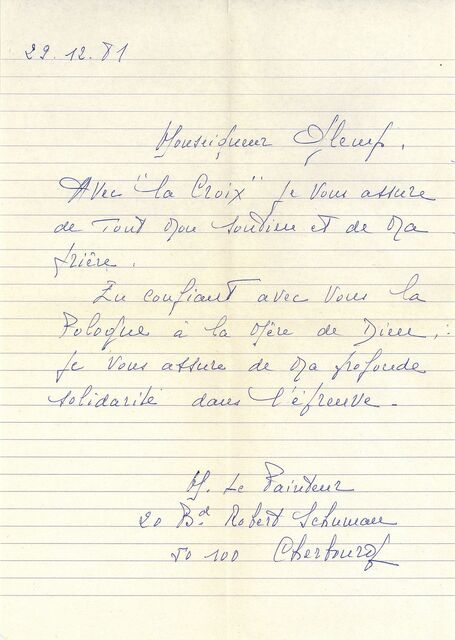 29.12.81
Monseigneur Glemp.
Avec "la Croix" je vous assure
de tout mon soutien et de ma
prière.
En confiant avec vous la
Pologne à la Mère de Dieu,
je vous assure de ma profonde
solidarité dans l'épreuve.
M. Le Painteur
20 Bd Robert Schuman
50 100 Cherbourg